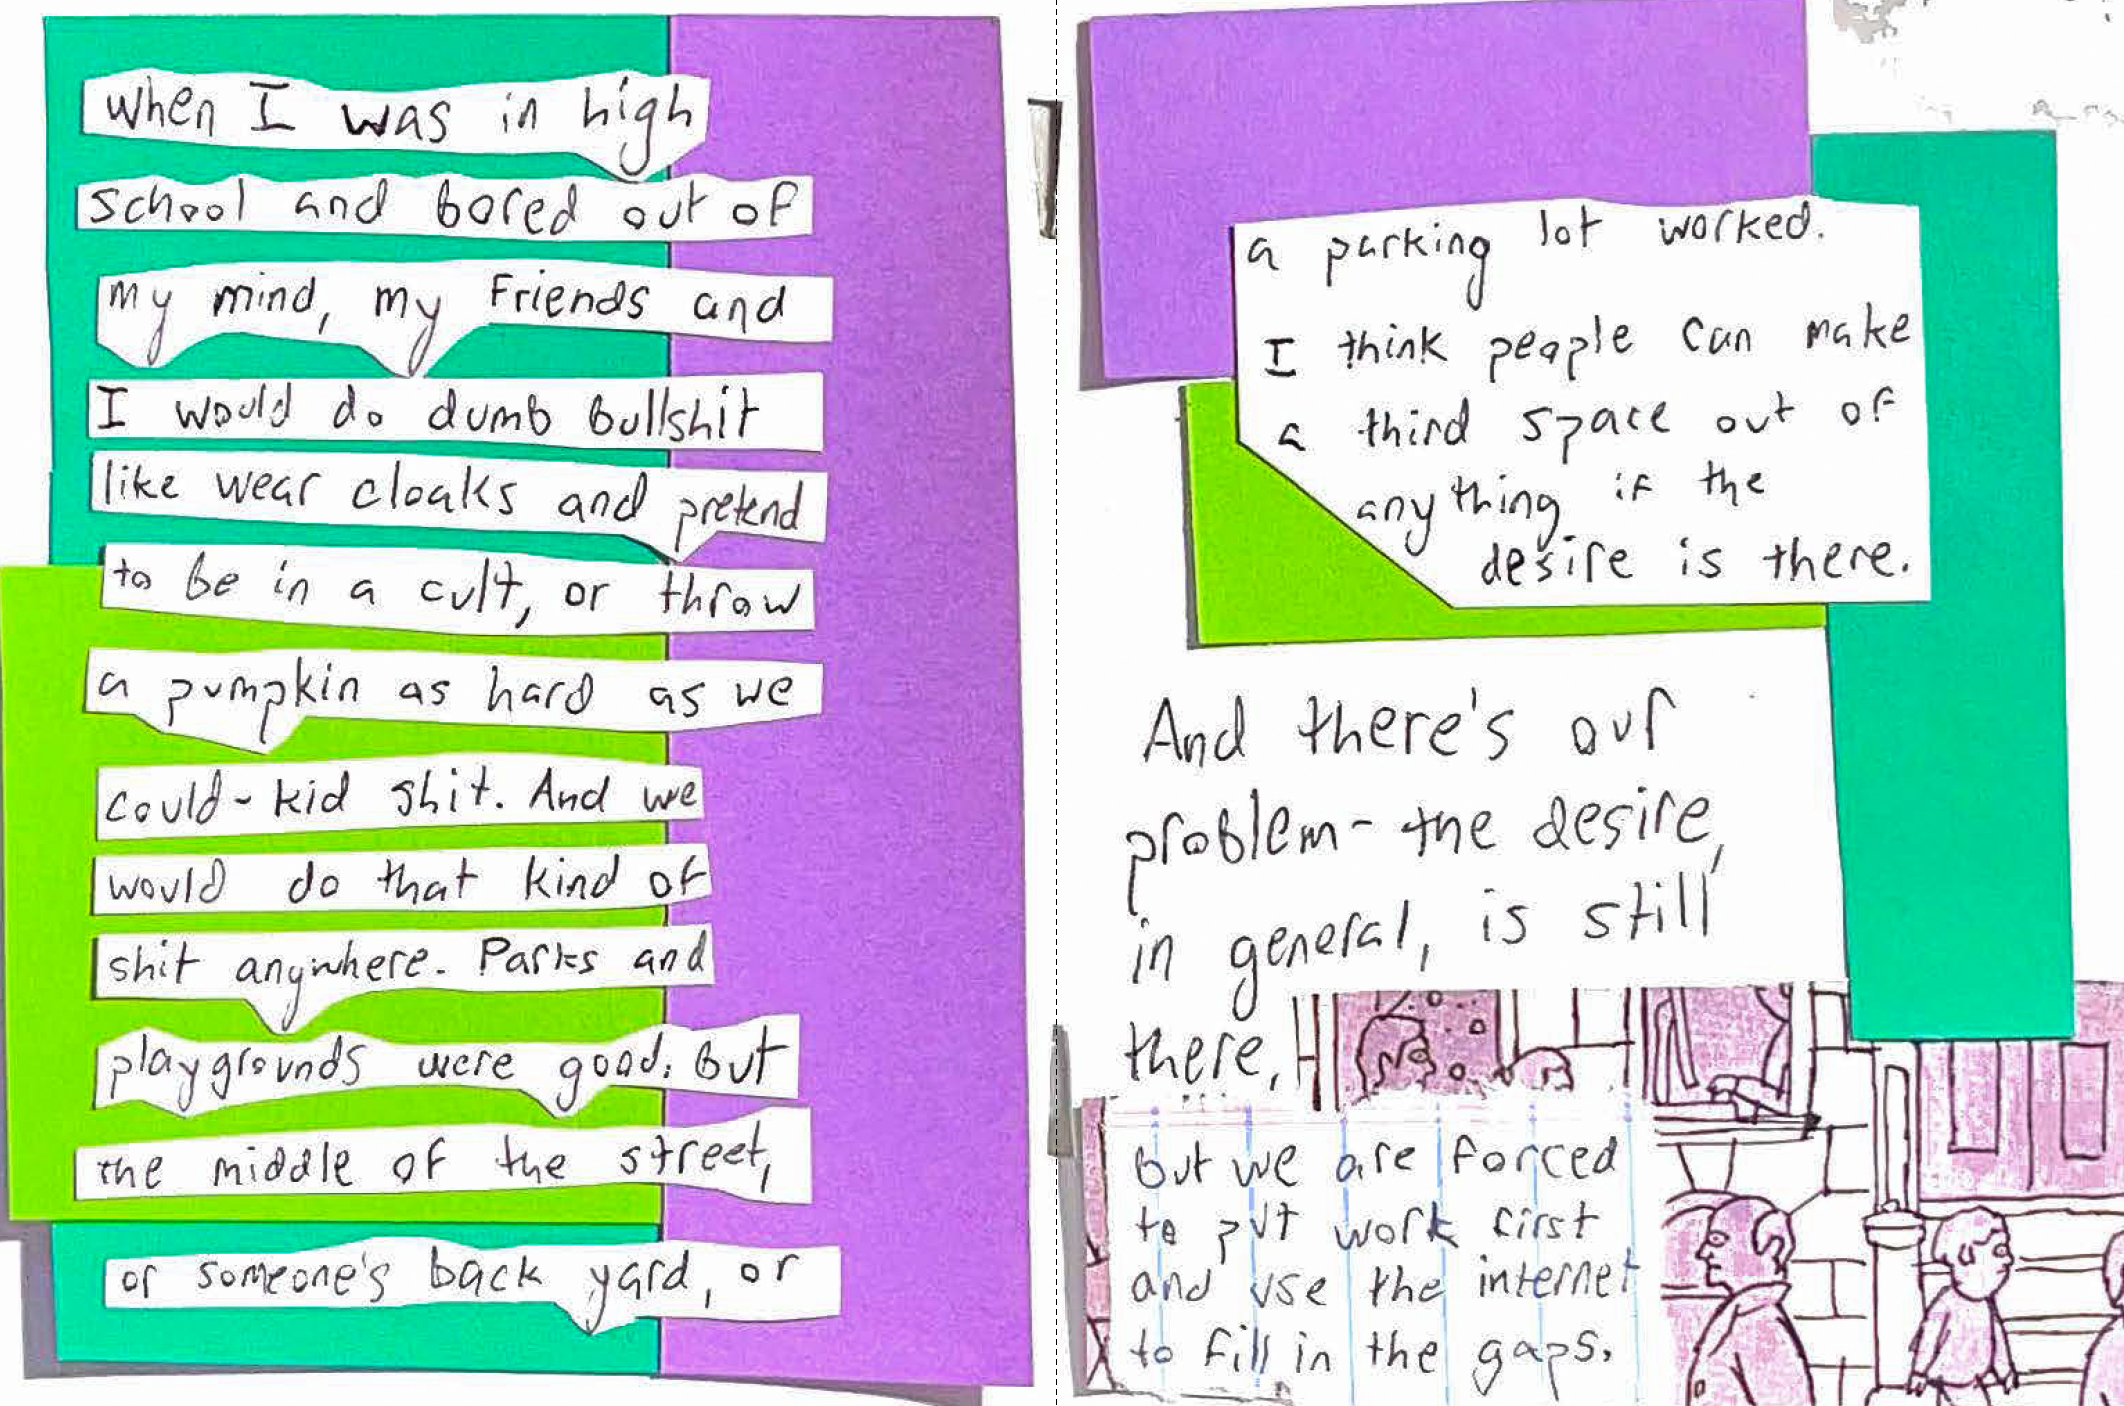 when I was in high
school and bored out of
my mind, my friends and
I would do dumb bullshit
like wear cloaks and pretend
to be in a cult, or throw
a pumpkin as hard as we
could-kid shit. And we
would do that kind of
shit anywhere. Parks and
playgrounds were good. But
the middle of the street,
or someone's back yard, or
a parking lot worked.
I think people can make
a third space out of
anything if the
desire is there.
And there's our
problem- the desire,
in general, is still
there,
but we are forced
to put work first
and use the internet
to fill in the gaps.